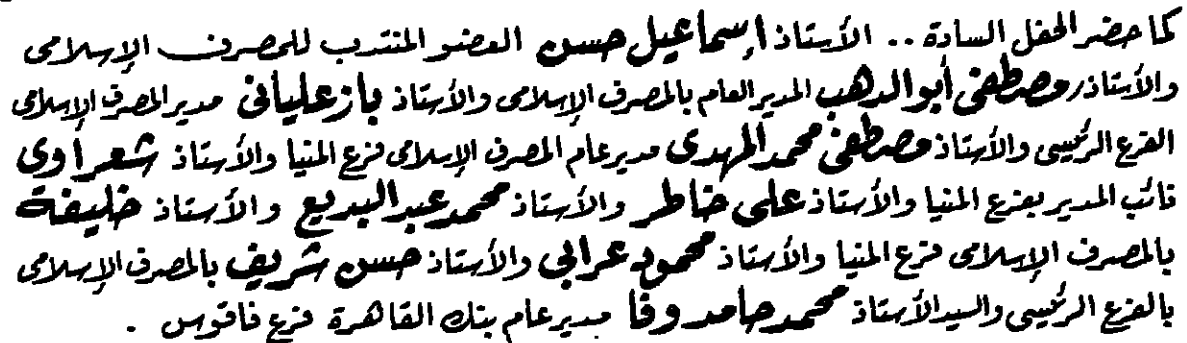 كما حضر الحفل السادة .. الأستاذ إسماعيل حسن العضو المنتدب للمصرف الإسلامى
والأستاذ/مصطفى أبو الدهب المدير العام بالمصرف الإسلامى والأستاذ باز عليانى مدير المصرف الإسلامى
الفرع الرئيسى والأستاذ مصطفى محمد المهدى مدير عام المصرف الإسلامى فرع المنيا والأستاذ شعراوى
نائب المدير بفرع المنيا والأستاذ على خاطر والأستاذ محمد عبد البديع والأستاذ خليفة
بالمصرف الإسلامى فرع المنيا والأستاذ محمود عرابى والأستاذ حسن شريف بالمصرف الإسلامى
بالفرع الرئيسى والسيد الأستاذ محمد حامد وفا مدير عام بنك القاهرة فرع فاقوس .